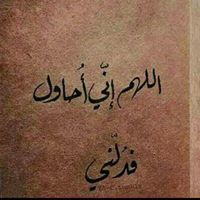 اللهم إنّي أُحاول
فدُلّني